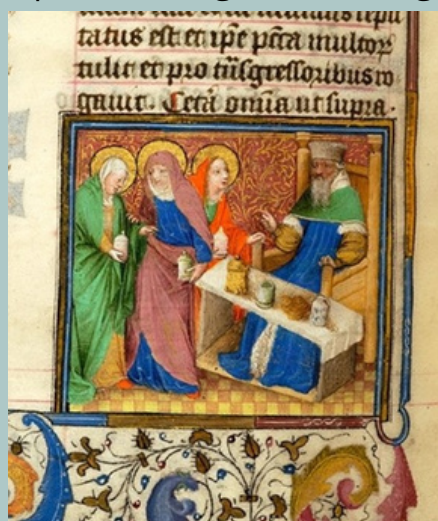 repu
tatus est et ip̄e pc̄ta multoꝝ
tulit et pro tn̄sgressoribus ro
gauit. Cetā om̄ia ut supra.